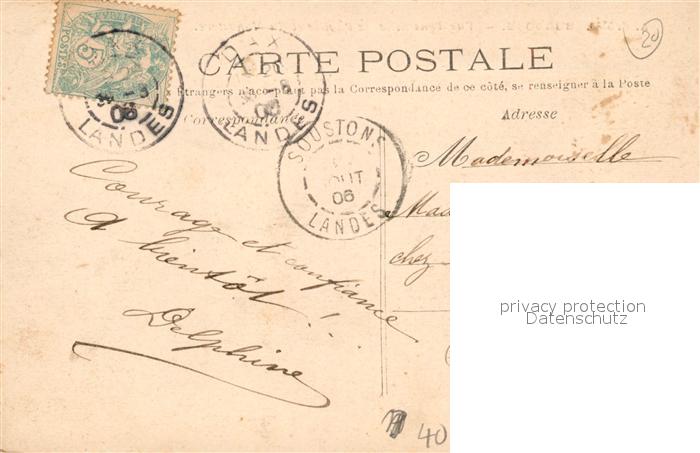 20
CARTE POSTALE
Étrangers n'acceptant pas la Correspondance de ce côté, se renseigner à la Poste
Correspondance
Adresse
POSTES
5
DAX
06
LANDES
DAX
06
LANDES
SOUSTONS
AOUT
06
LANDES
Mademoiselle
Mad
chez
Courage et confiance
A bientôt!!
Delphine
40
privacy protection
Datenschutz